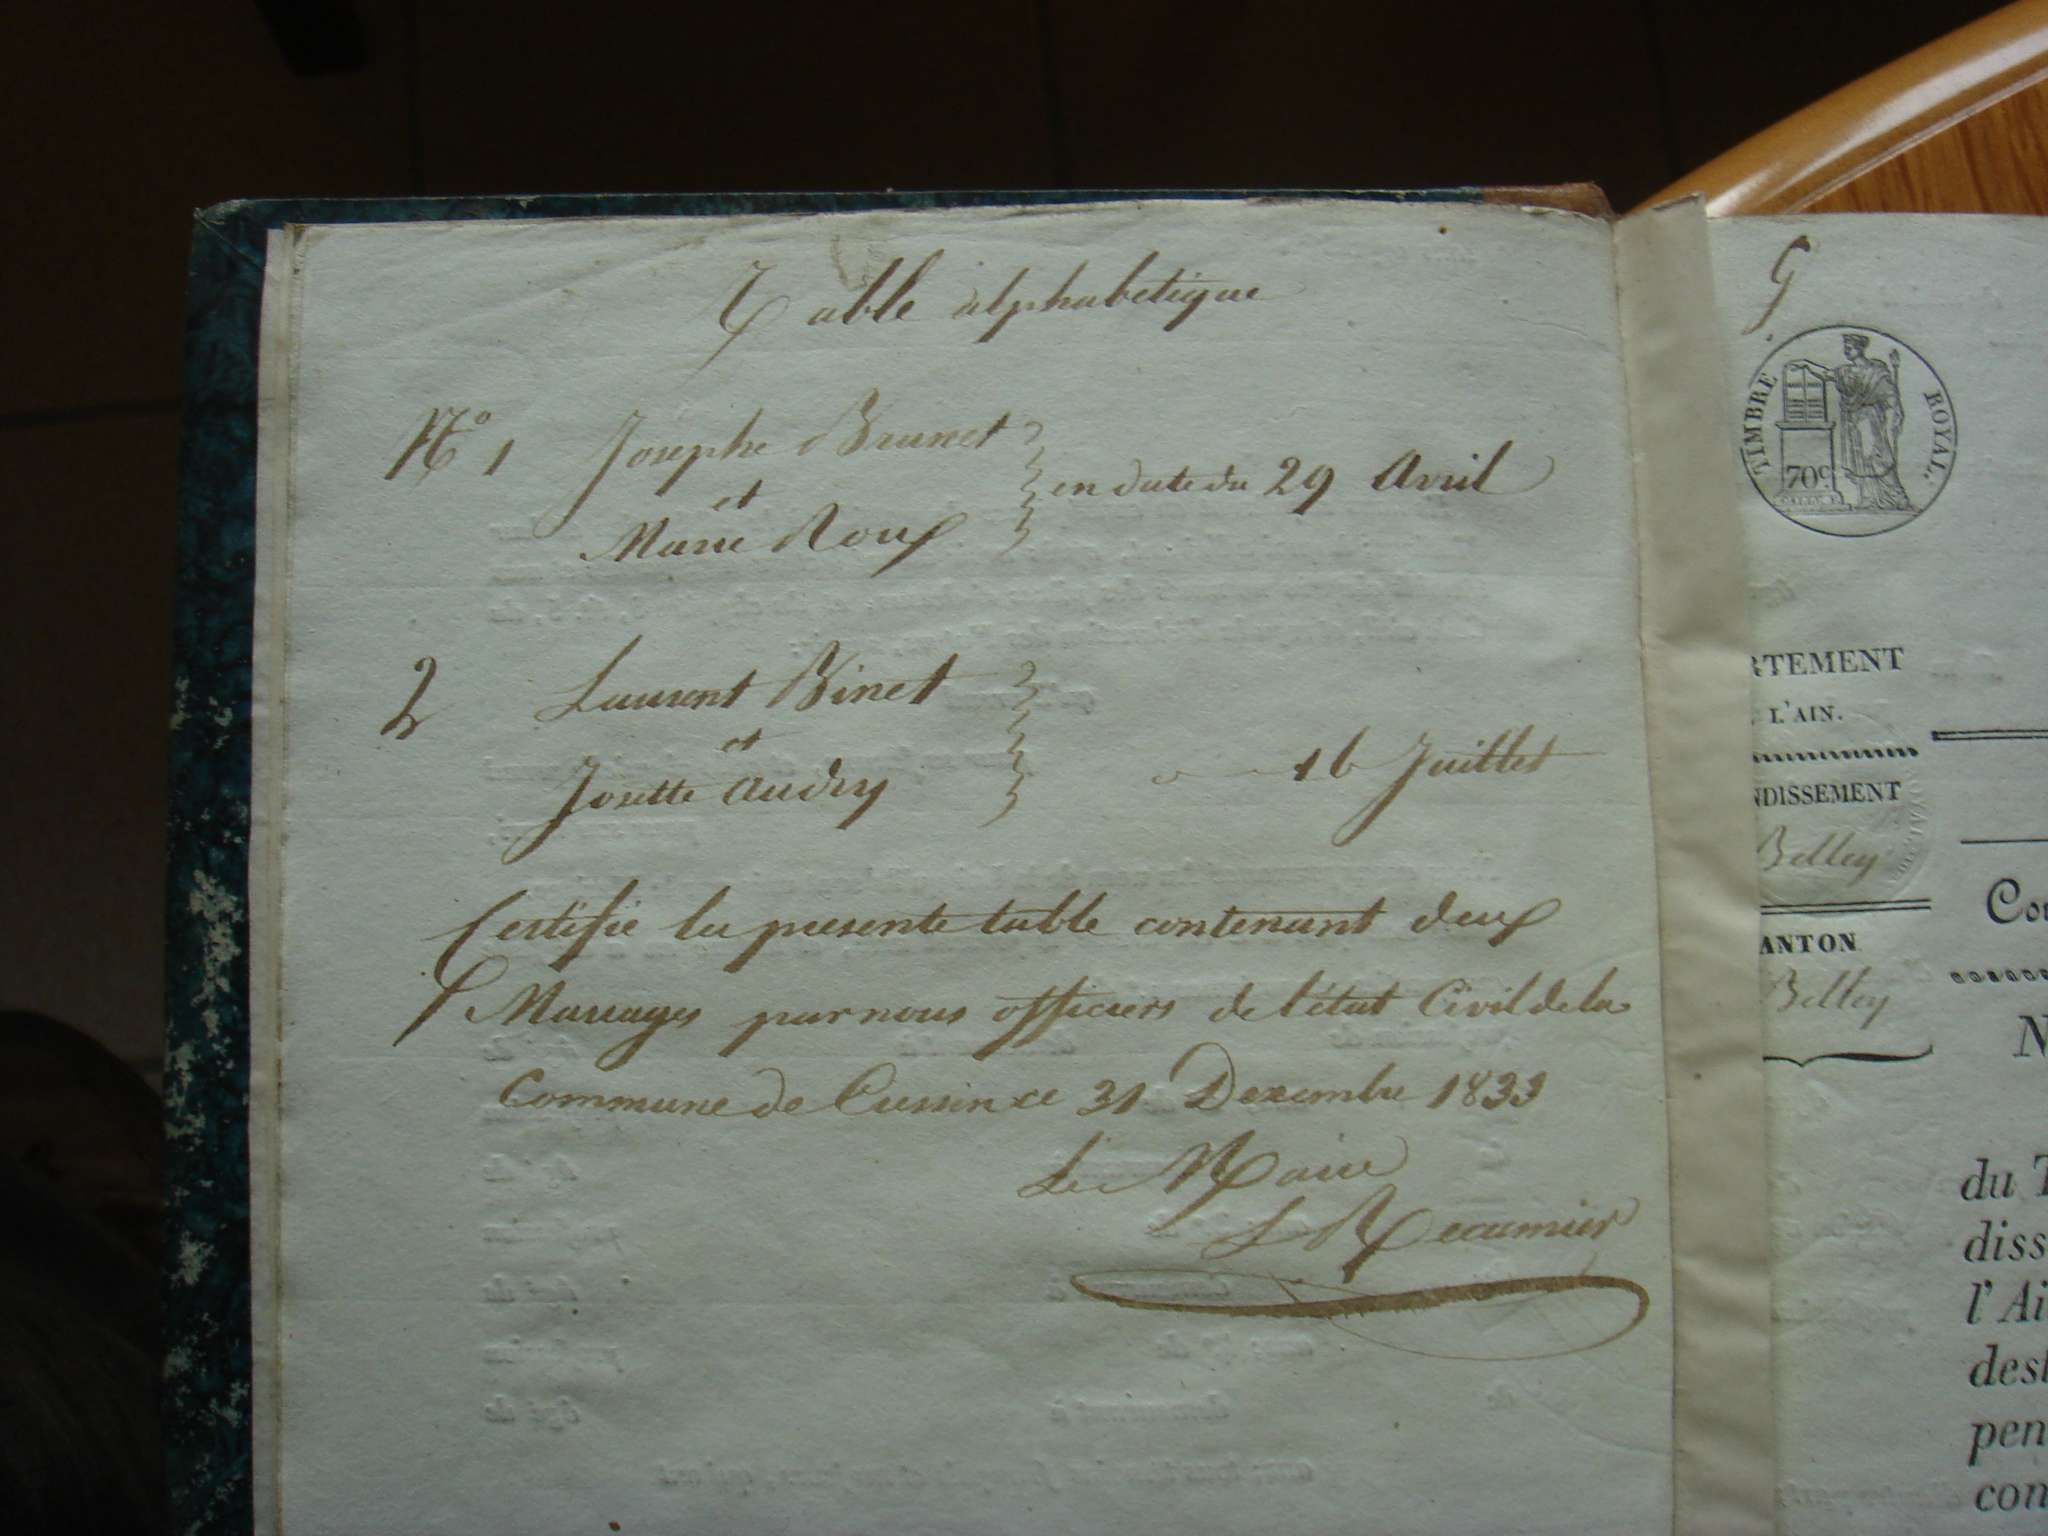 Table alphabétique
N° 1 Josephe Brunet
et
Marie Roux
en date du 29 Avril
2 Laurent Binet
et
Josette Audry
16 Juillet
Certifié la presente table contenant deux
Mariages par nous officiers de l'état Civil de la
Commune de Cressin ce 31 Dexembre 1833
Le Maire
L Recamier
TIMBRE ROYAL.
70c.
RTEMENT
L'AIN.
NDISSEMENT
Belley
ANTON
Belley
Co
N
du T
diss
l'Ai
des
pen
con